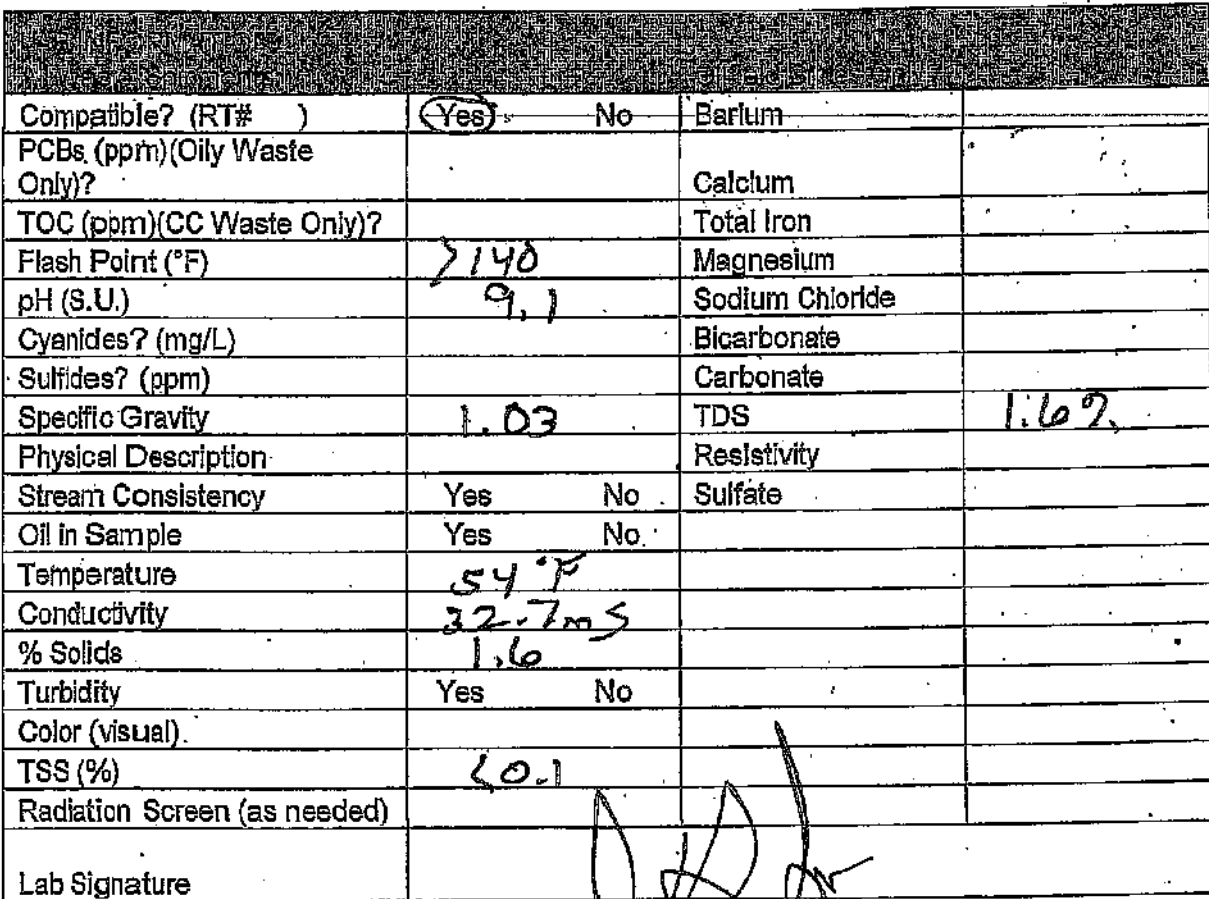 Compatible? (RT# ) Yes No Barium
PCBs (ppm)(Oily Waste
Only)? Calcium
TOC (ppm)(CC Waste Only)? Total Iron
Flash Point (°F) >140 Magnesium
pH (S.U.) 9.1 Sodium Chloride
Cyanides? (mg/L) Bicarbonate
Sulfides? (ppm) Carbonate
Specific Gravity 1.03 TDS 1.6%
Physical Description Resistivity
Stream Consistency Yes No Sulfate
Oil in Sample Yes No
Temperature 54 °F
Conductivity 32.7mS
% Solids 1.6
Turbidity Yes No
Color (visual)
TSS (%) <0.1
Radiation Screen (as needed)
Lab Signature